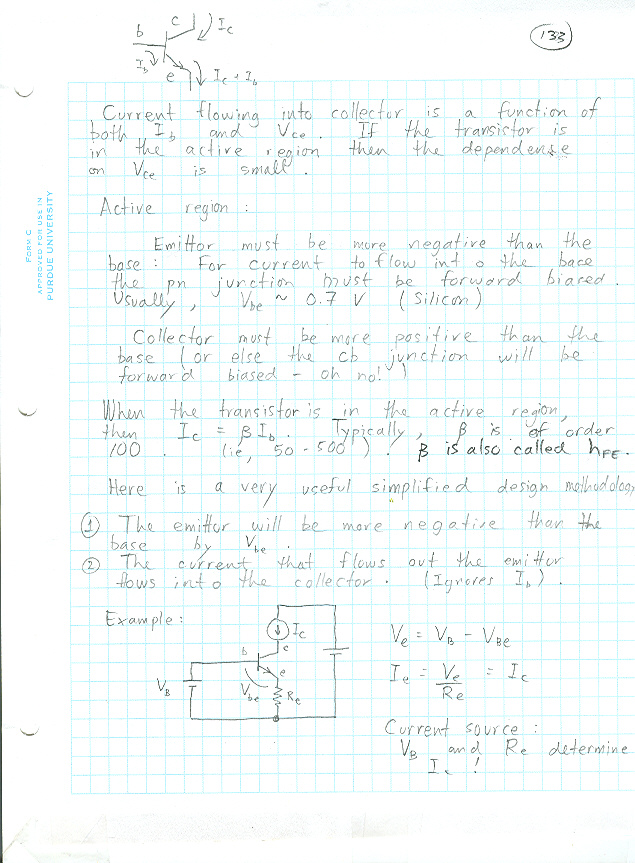 b
c
I_c
I_b
e
I_c + I_b
133
Current flowing into collector is a function of
both I_b and V_ce . If the transistor is
in the active region then the dependense
on V_ce is small .
FORM C
APPROVED FOR USE IN
PURDUE UNIVERSITY
Active region :
Emittor must be more negative than the
base : For current to flow into the base
the pn junction must be forward biased .
Usually , V_be ~ 0.7 V (Silicon)
Collector must be more positive than the
base (or else the cb junction will be
forward biased - oh no! )
When the transistor is in the active region,
then I_c = β I_b . Typically , β is of order
100 . (ie, 50 - 500 ) . β is also called h_FE .
Here is a very useful simplified design methodology
① The emittor will be more negative than the
base by V_be .
② The current that flows out the emittor
flows into the collector . (Ignores I_b ) .
Example :
I_c
b
c
e
V_B
V_be
R_e
V_e = V_B - V_Be
I_e = V_e / R_e = I_c
Current source :
V_B and R_e determine
I_c !